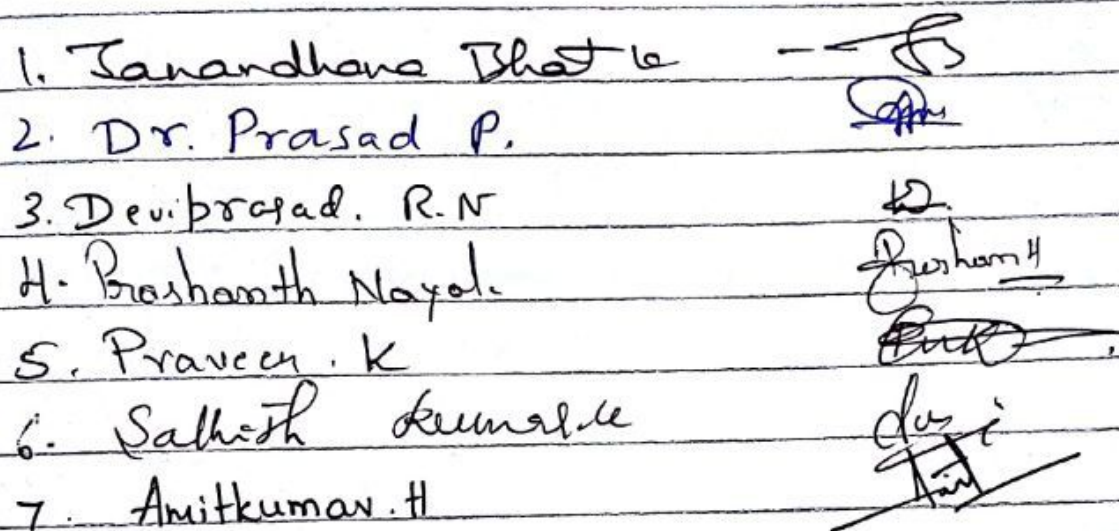 1. Janandhana Bhat k
2. Dr. Prasad P.
3. Deviprasad. R.N
4. Prashanth Nayak. Prashant
5. Praveen. K
6. Sathish kumar.k
7. Amitkumar.H